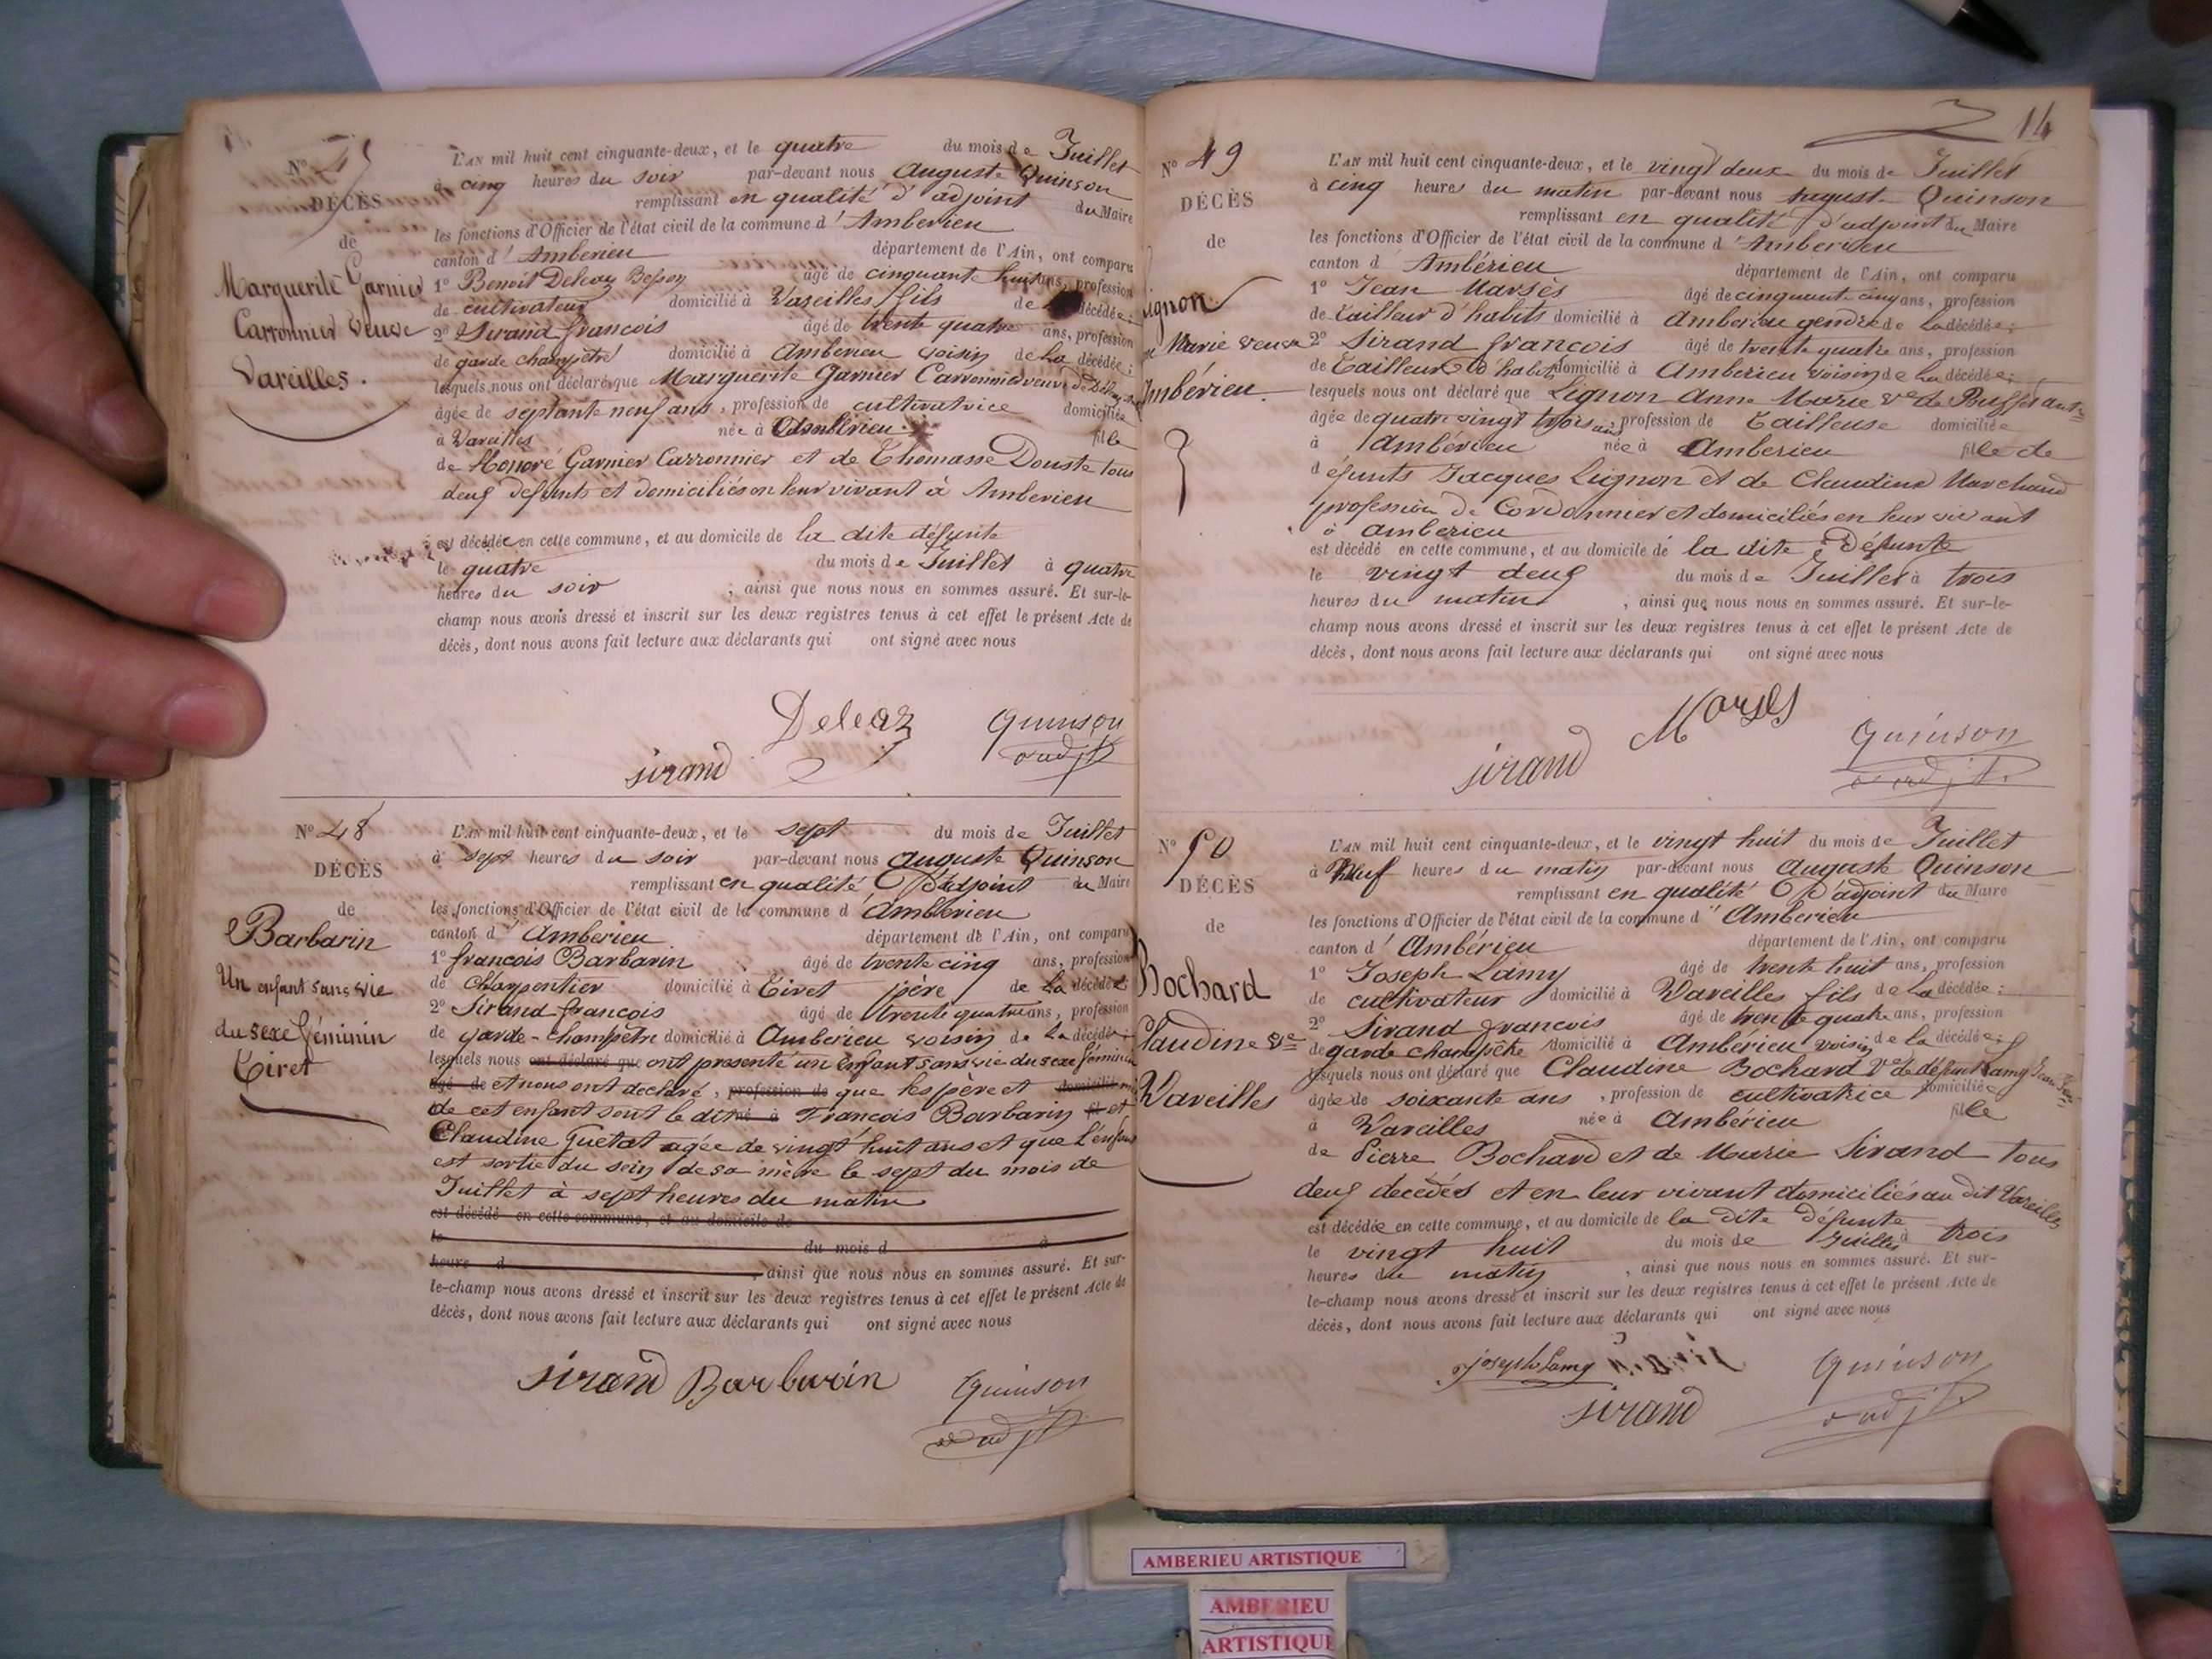 Nº 47
DÉCÈS
de
Marguerite Garnier
Carronnier veuve
Vareilles.
L'AN mil huit cent cinquante-deux, et le quatre du mois de Juillet
à cinq heures du soir par-devant nous Auguste Quinson
remplissant en qualité d'adjoint du Maire
les fonctions d'Officier de l'état civil de la commune d'Amberieu
canton d'Amberieu département de l'Ain, ont comparu
1º Benoit Deleaz âgé de cinquante huit ans, profession
de cultivateur domicilié à Vareilles fils de la décédée;
2º Sirand francois âgé de trente quatre ans, profession
de garde champêtre domicilié à Amberieu voisin de la décédée;
lesquels nous ont déclaré que Marguerite Garnier Carronnier veuve de
âgée de septante neuf ans, profession de cultivatrice domiciliée
à Vareilles née à Ambérieu fille
de Honoré Garnier Carronnier et de Thomasse Douste tous
deux défunts et domiciliés en leur vivant à Amberieu
est décédée en cette commune, et au domicile de la dite défunte
le quatre du mois de Juillet à quatre
heures du soir ; ainsi que nous nous en sommes assuré. Et sur-le-
champ nous avons dressé et inscrit sur les deux registres tenus à cet effet le présent Acte de
décès, dont nous avons fait lecture aux déclarants qui ont signé avec nous
Deleaz Quinson
Sirand adjt
Nº 48
DÉCÈS
de
Barbarin
Un enfant sans vie
du sexe féminin
Tiret
L'AN mil huit cent cinquante-deux, et le sept du mois de Juillet
à sept heures du soir par-devant nous Auguste Quinson
remplissant en qualité d'adjoint du Maire
les fonctions d'Officier de l'état civil de la commune d'Amberieu
canton d'Amberieu département de l'Ain, ont comparu
1º francois Barbarin âgé de trente cinq ans, profession
de Charpentier domicilié à Tiret père de la décédée
2º Sirand francois âgé de trente quatre ans, profession
de garde-champêtre domicilié à Amberieu voisin de la décédée;
lesquels nous ont déclaré que ont presenté un enfant sans vie du sexe féminin
âgé de et nous ont declaré, profession de que les père et domicilié
de cet enfant sont le dit né à Francois Barbarin fil et
Claudine Guetat agée de vingt huit ans et que l'enfant
est sortie du sein de sa mère le sept du mois de
Juillet à sept heures du matin
est décédé en cette commune, et au domicile de
le du mois d à
heure d , ainsi que nous nous en sommes assuré. Et sur-
le-champ nous avons dressé et inscrit sur les deux registres tenus à cet effet le présent Acte de
décès, dont nous avons fait lecture aux déclarants qui ont signé avec nous
Sirand Barbarin Quinson
adjt
14
Nº 49
DÉCÈS
de
ignon
Marie veuve
mbérieu.
L'AN mil huit cent cinquante-deux, et le vingt deux du mois de Juillet
à cinq heures du matin par-devant nous August Quinson
remplissant en qualité d'adjoint du Maire
les fonctions d'Officier de l'état civil de la commune d'Amberieu
canton d'Ambérieu département de l'Ain, ont comparu
1º Jean Marsès âgé de cinquante cinq ans, profession
de tailleur d'habits domicilié à Amberieu gendre de la décédée;
2º Sirand francois âgé de trente quatre ans, profession
de Tailleur d'habits domicilié à Amberieu voisin de la décédée;
lesquels nous ont déclaré que Lignon Anne Marie ve de
âgée de quatre vingt trois ans, profession de Tailleuse domiciliée
à Ambérieu née à Amberieu fille de
défunts Jacques Lignon et de Claudine Marchand
profession de Cordonnier et domiciliés en leur vivant
à amberieu
est décédé en cette commune, et au domicile de la dite défunte
le vingt deux du mois de Juillet à trois
heures du matin , ainsi que nous nous en sommes assuré. Et sur-le-
champ nous avons dressé et inscrit sur les deux registres tenus à cet effet le présent Acte de
décès, dont nous avons fait lecture aux déclarants qui ont signé avec nous
Marsès
Sirand Quinson
adjt.
Nº 50
DÉCÈS
de
Bochard
Claudine ve
Vareilles
L'AN mil huit cent cinquante-deux, et le vingt huit du mois de Juillet
à Neuf heures du matin par-devant nous Auguste Quinson
remplissant en qualité d'adjoint du Maire
les fonctions d'Officier de l'état civil de la commune d'Amberieu
canton d'Ambérieu département de l'Ain, ont comparu
1º Joseph Lamy âgé de trente huit ans, profession
de cultivateur domicilié à Vareilles fils de la décédée;
2º Sirand francois âgé de trente quatre ans, profession
de garde champêtre domicilié à Ambérieu voisin de la décédée;
lesquels nous ont déclaré que Claudine Bochard ve de défunt Lamy
âgée de soixante ans, profession de cultivatrice domiciliée
à Vareilles née à Ambérieu fille
de Pierre Bochard et de Marie Sirand tous
deux decedés et en leur vivant domiciliés au dit Vareilles
est décédée en cette commune, et au domicile de la dite défunte
le vingt huit du mois de Juillet à trois
heures du matin , ainsi que nous nous en sommes assuré. Et sur-
le-champ nous avons dressé et inscrit sur les deux registres tenus à cet effet le présent Acte de
décès, dont nous avons fait lecture aux déclarants qui ont signé avec nous
joseph Lamy Quinson
Sirand adjt.
AMBERIEU ARTISTIQUE
AMBERIEU
ARTISTIQUE